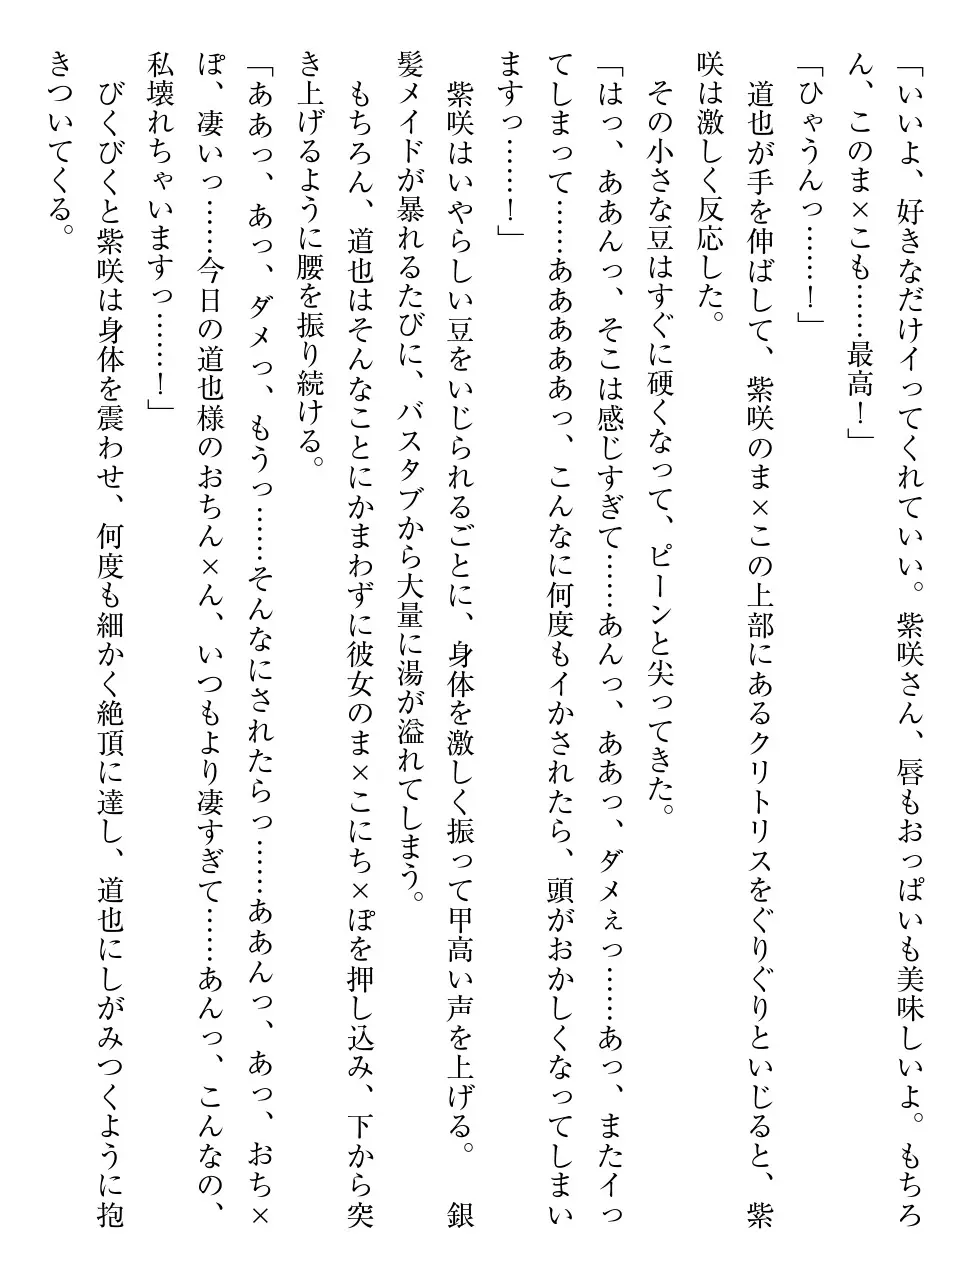 「いいよ、好きなだけイってくれていい。紫咲さん、唇もおっぱいも美味しいよ。もちろ
ん、このま×こも……最高！」
「ひゃうんっ……！」
　道也が手を伸ばして、紫咲のま×この上部にあるクリトリスをぐりぐりといじると、紫
咲は激しく反応した。
　その小さな豆はすぐに硬くなって、ピーンと尖ってきた。
「はっ、ああんっ、そこは感じすぎて……あんっ、ああっ、ダメぇっ……あっ、またイっ
てしまって……ああああっ、こんなに何度もイかされたら、頭がおかしくなってしまい
ますっ……！」
　紫咲はいやらしい豆をいじられるごとに、身体を激しく振って甲高い声を上げる。　銀
髪メイドが暴れるたびに、バスタブから大量に湯が溢れてしまう。
　もちろん、道也はそんなことにかまわずに彼女のま×こにち×ぽを押し込み、下から突
き上げるように腰を振り続ける。
「ああっ、あっ、ダメっ、もうっ……そんなにされたらっ……ああんっ、あっ、おち×
ぽ、凄いっ……今日の道也様のおちん×ん、いつもより凄すぎて……あんっ、こんなの、
私壊れちゃいますっ……！」
　びくびくと紫咲は身体を震わせ、何度も細かく絶頂に達し、道也にしがみつくように抱
きついてくる。